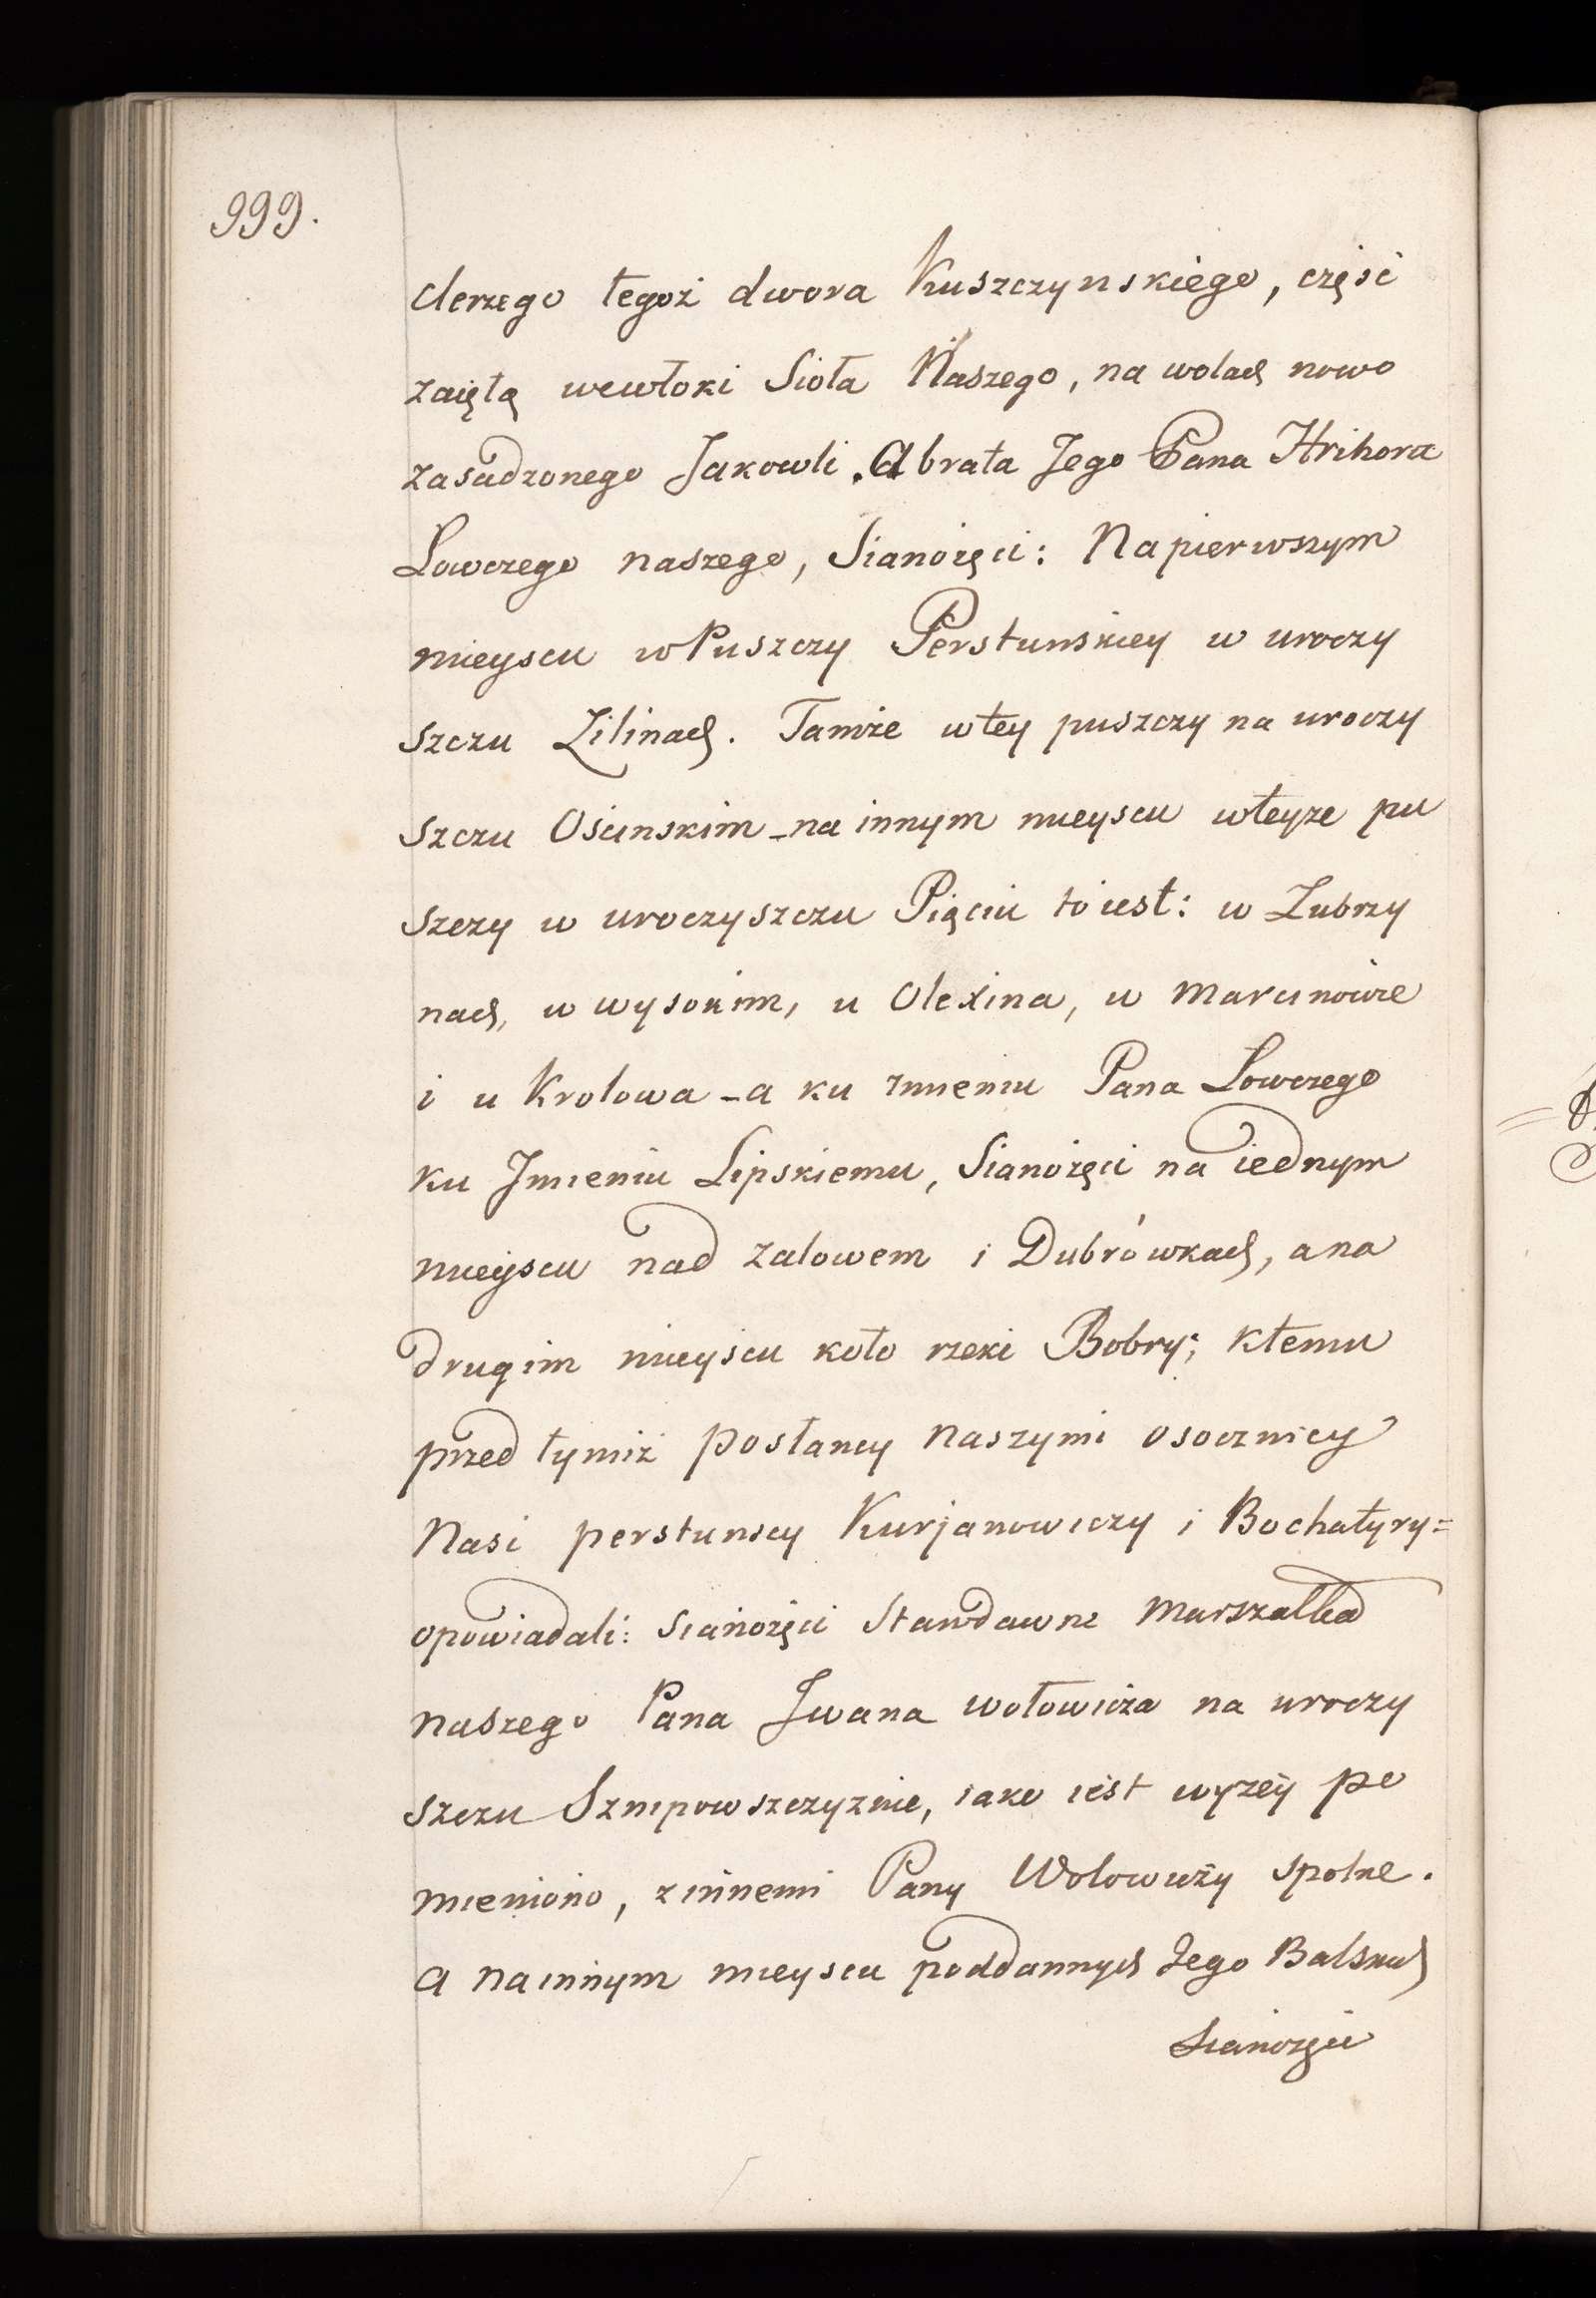 999.
derzego tegoż dwora Kuszczynskiego, częsc
zaiętą wewłoki Sioła Naszego, na wolach nowo
zasadzonego Jakowli. A brata Jego Pana Hrihora
Lowczego naszego, Sianożęci: Na pierwszym
mieyscu w Puszczy Perstunskiey w uroczy
szczu Zilinach. Tamże wtey puszczy na uroczy
szczu Oscinskim - na innym mieyscu wteyże pu
szczy w uroczyszczu Pięciu to iest: w Zubrzy
nach, w wysokim, u Olexina, u Marcinowie
i u Krolowa - a ku Imieniu Pana Lowczego
ku Jmieniu Lipskiemu, Sianożęci na iednym
mieyscu nad Zalowem i Dubrówkach, a na
drugim mieyscu koło rzeki Bobry; ktemu
przed tymiż posłancy naszymi osocznicy
Nasi perstunscy Kurjanowiczy i Bochatyry=
opowiadali: sianożęci stawdawne Marszałka
naszego Pana Jwana Wołowicza na uroczy
szczu Sznipowszczyznie, iako iest wyzey po
mieniono, zinnemi Pany Wolowiczy spolne.
A na innym mieyscu poddannych Jego Balskich
Sianożęci